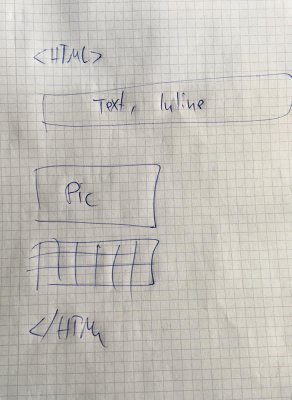 <HTML>
Text, Inline
Pic
</HTML